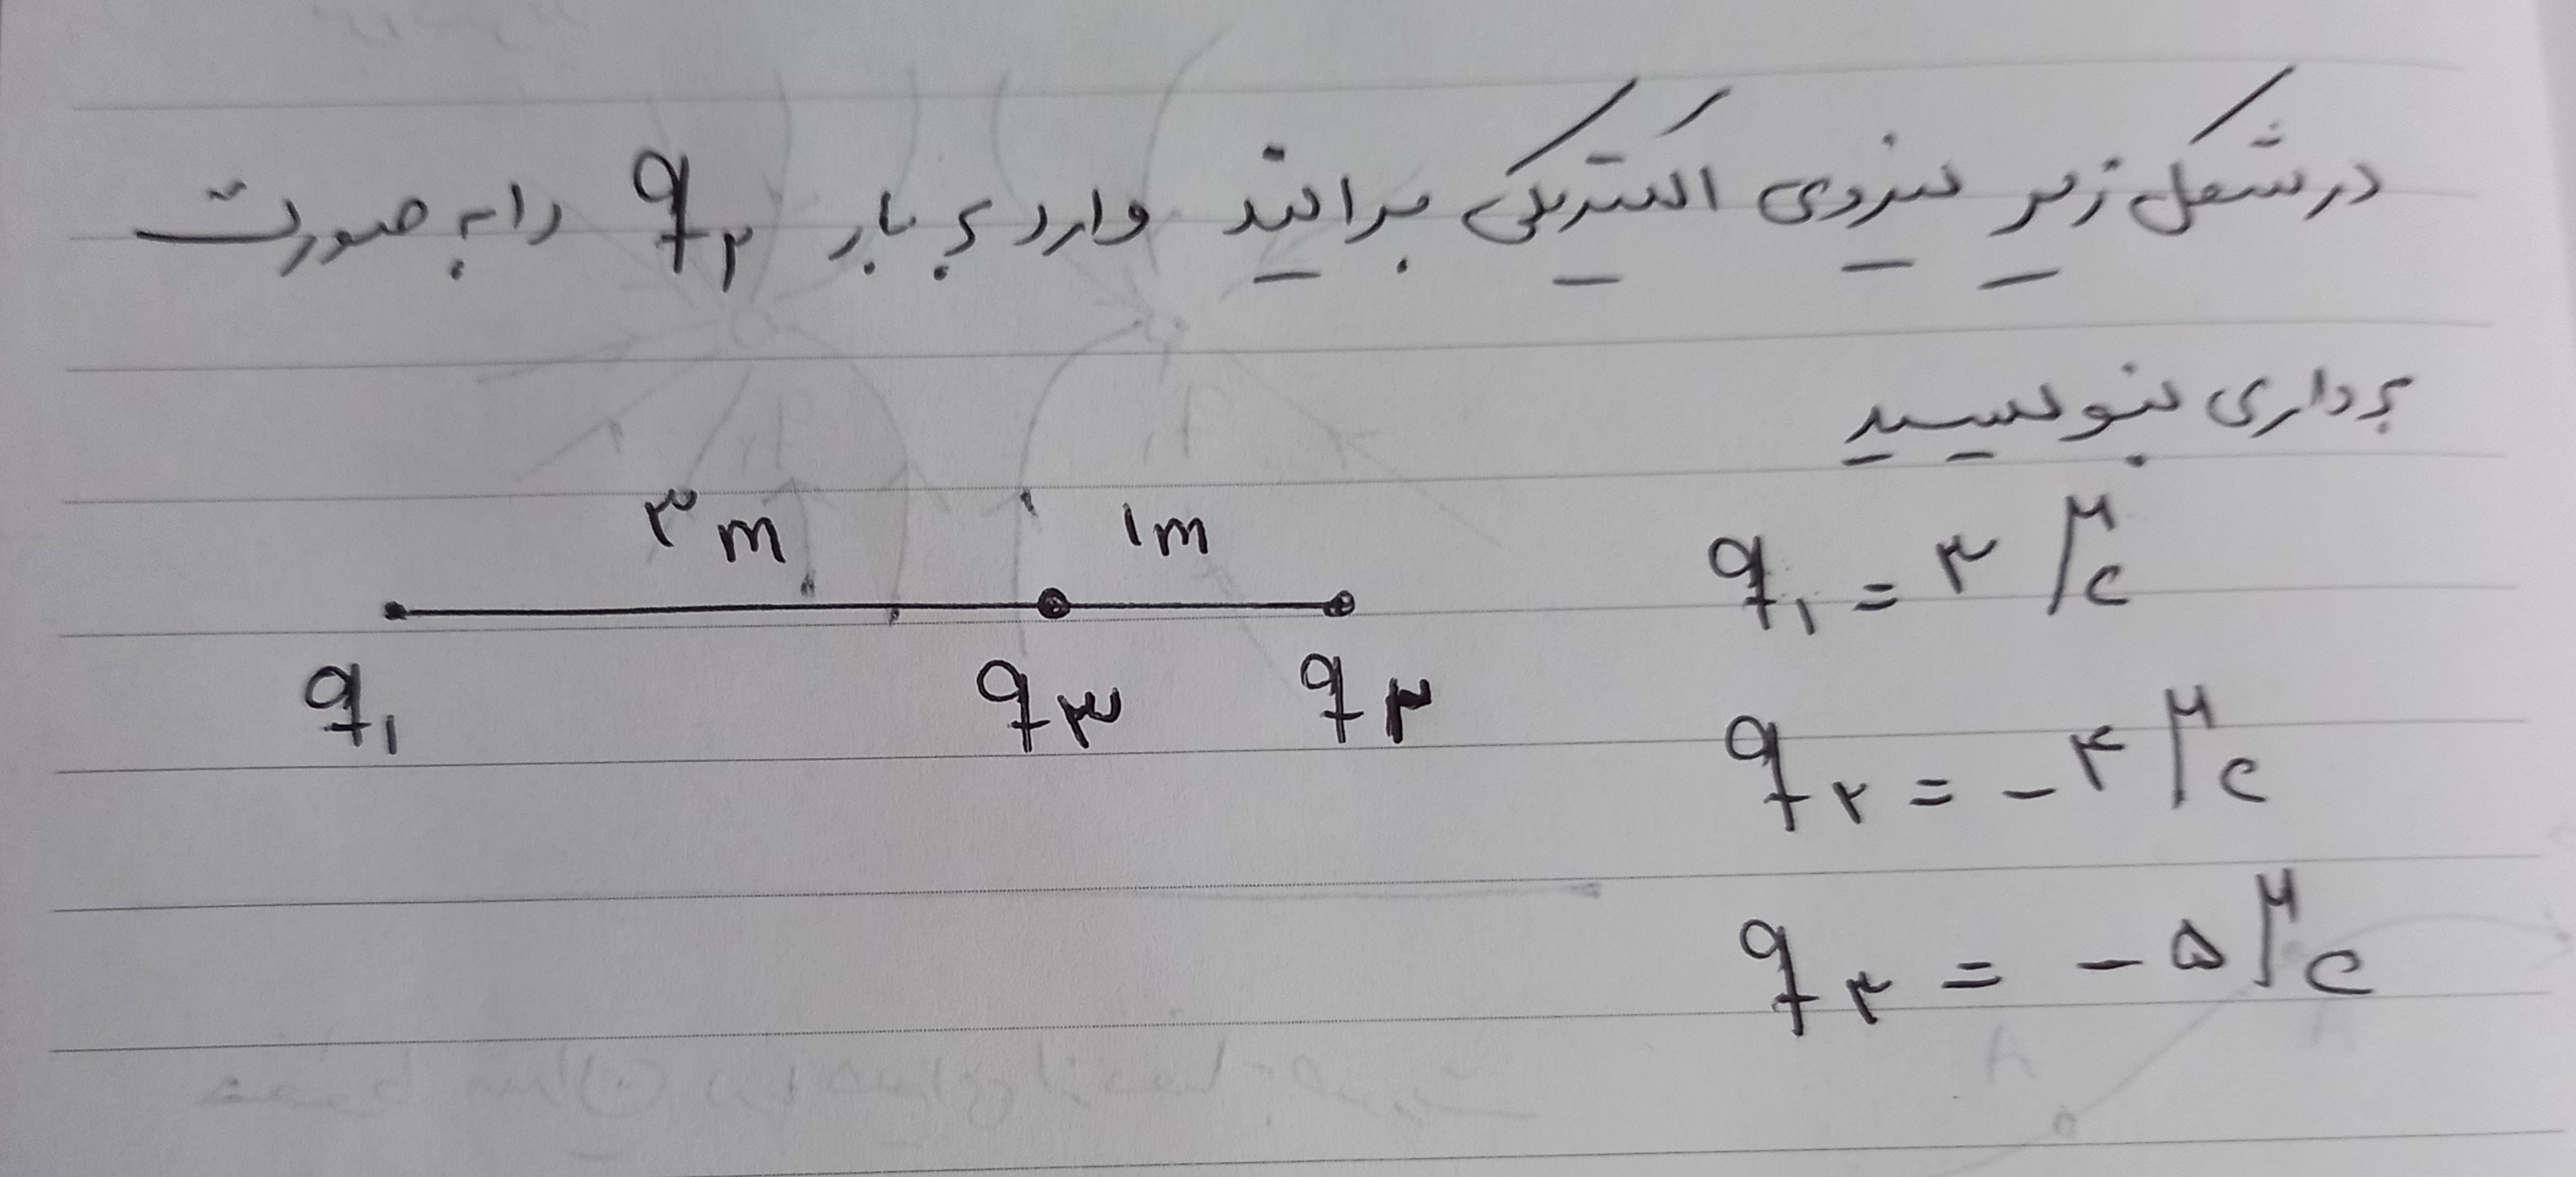 در شکل زیر نیروی الکتریکی برایند وارد بر بار q۲ را به صورت
برداری بنویسید
۳m ۱m
q۱ q۳ q۲
q۱ = ۳ μc
q۲ = -۴ μc
q۳ = -۵ μc